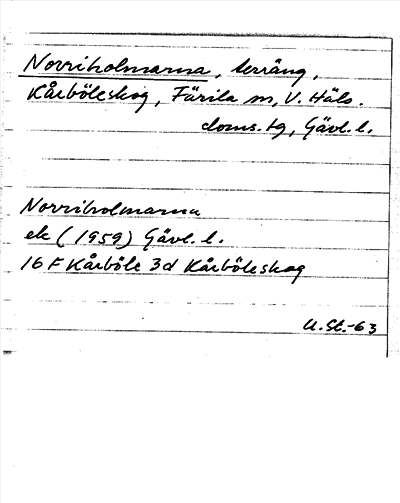 Norriholmarna, terräng,
Kårböleskog, Färila sn, V. Häls.
doms. tg, Gävl. l.
Norriholmarna
ek (1959) Gävl. l.
16 F Kårböle 3d Kårböleskog
U. St.-63